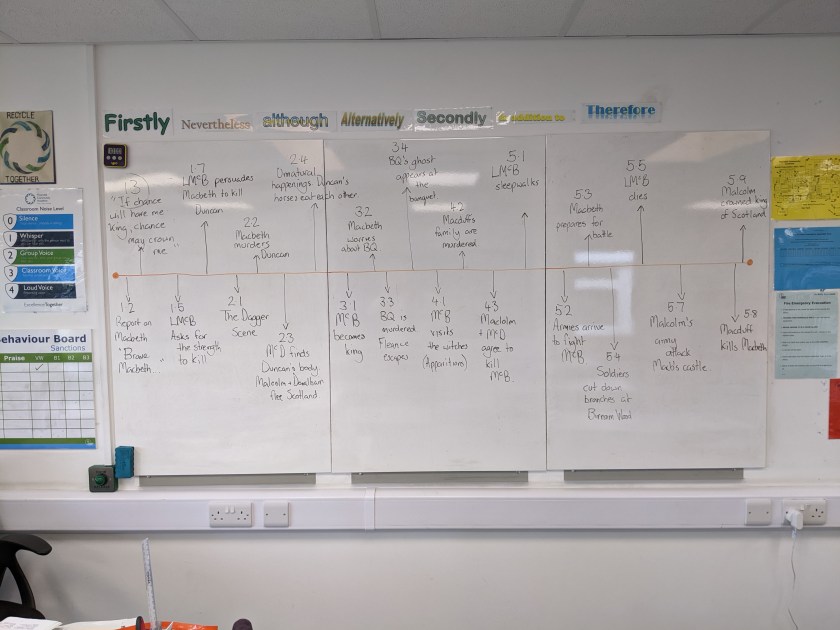 Firstly
Nevertheless
although
Alternatively
Secondly
In addition to
Therefore
RECYCLE
TOGETHER
Classroom Noise Level
0 Silence
1 Whisper
2 Group Voice
3 Classroom Voice
4 Loud Voice
Behaviour Board
Sanctions
Praise VW B1 B2 B3
1.3
"If chance
will have me
king, chance
may crown
me"
1.7
LMcB persuades
Macbeth to kill
Duncan
2.2
Macbeth
murders
Duncan
2.4
Unnatural
happenings Duncan's
horses eat each other
3.2
Macbeth
worries
about BQ
3.4
BQ's ghost
appears at
the
banquet
4.2
Macduff's
family are
murdered
5.1
LMcB
sleepwalks
5.3
Macbeth
prepares for
battle
5.5
LMcB
dies
5.9
Malcolm
crowned king
of Scotland
1.2
Report on
Macbeth
"Brave
Macbeth..."
1.5
LMcB
Asks for
the strength
to kill
2.1
The Dagger
Scene
2.3
McD finds
Duncan's body
Malcolm + Donalbain
flee Scotland
3.1
McB
becomes
king
3.3
BQ is
murdered
Fleance
escapes
4.1
McB
visits
the witches
(Apparitions)
4.3
Maclolm
+ McD
agree to
kill
McB
5.2
Armies arrive
to fight
McB
5.4
Soldiers
cut down
branches at
Birnam Wood
5.7
Malcolm's
army
attack
Mac's castle
5.8
Macduff
kills Macbeth
Fire Emergency Evacuation